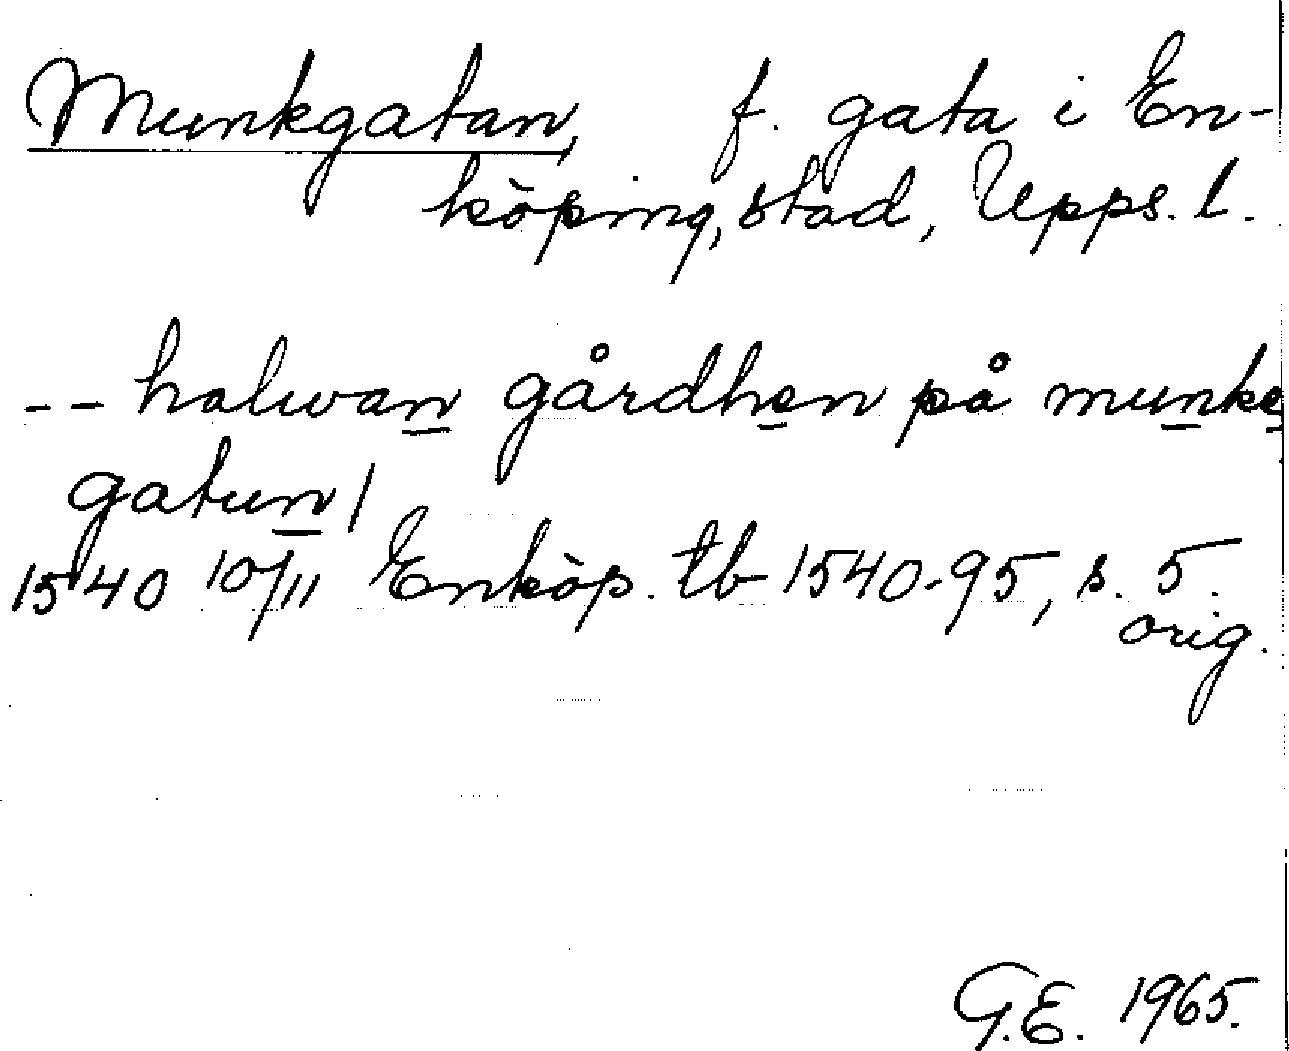 Munkgatan, f. gata i En-
köping, stad, Upps. l.
-- halwan gårdhen på munke
gatun /
1540 10/11 Enköp. tb 1540-95, s. 5.
orig.
G.E. 1965.